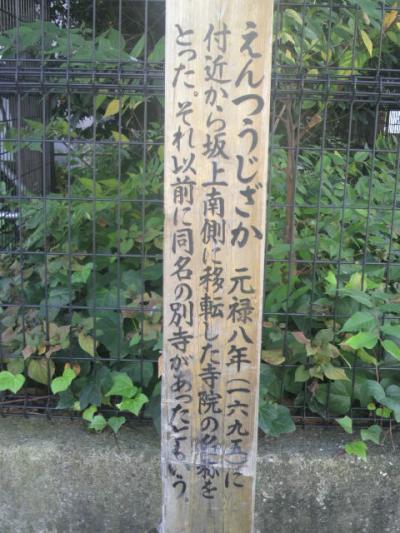 えんつうじざか 元禄八年(一六九五)に
付近から坂上南側に移転した寺院の名称を
とった。それ以前に同名の別寺があったともいう。